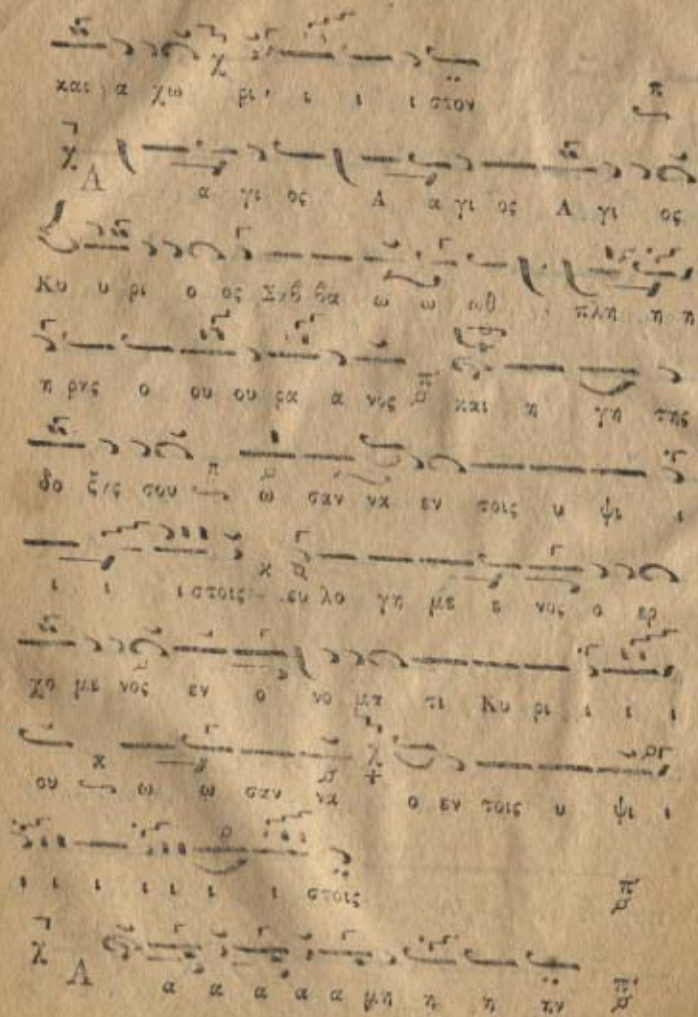 και α χω ρι ι ι ι ι στον
Α α γι ος Α α γι ος Α γι ος
Κυ υ ρι ο ος Σαβ βα ω ω ωθ πλη η η
η ρης ο ου ου ρα α νος και η γη της
δο ξης σου ω σαν να εν τοις υ ψι ι
ι ι ι στοις ευ λο γη με ε νος ο ερ
χο με νος εν ο νο μα τι Κυ ρι ι ι ι
ου ω ω σαν να ο εν τοις υ ψι ι
ι ι ι ι ι ι ι στοις
Α α α α α α μη η η ην